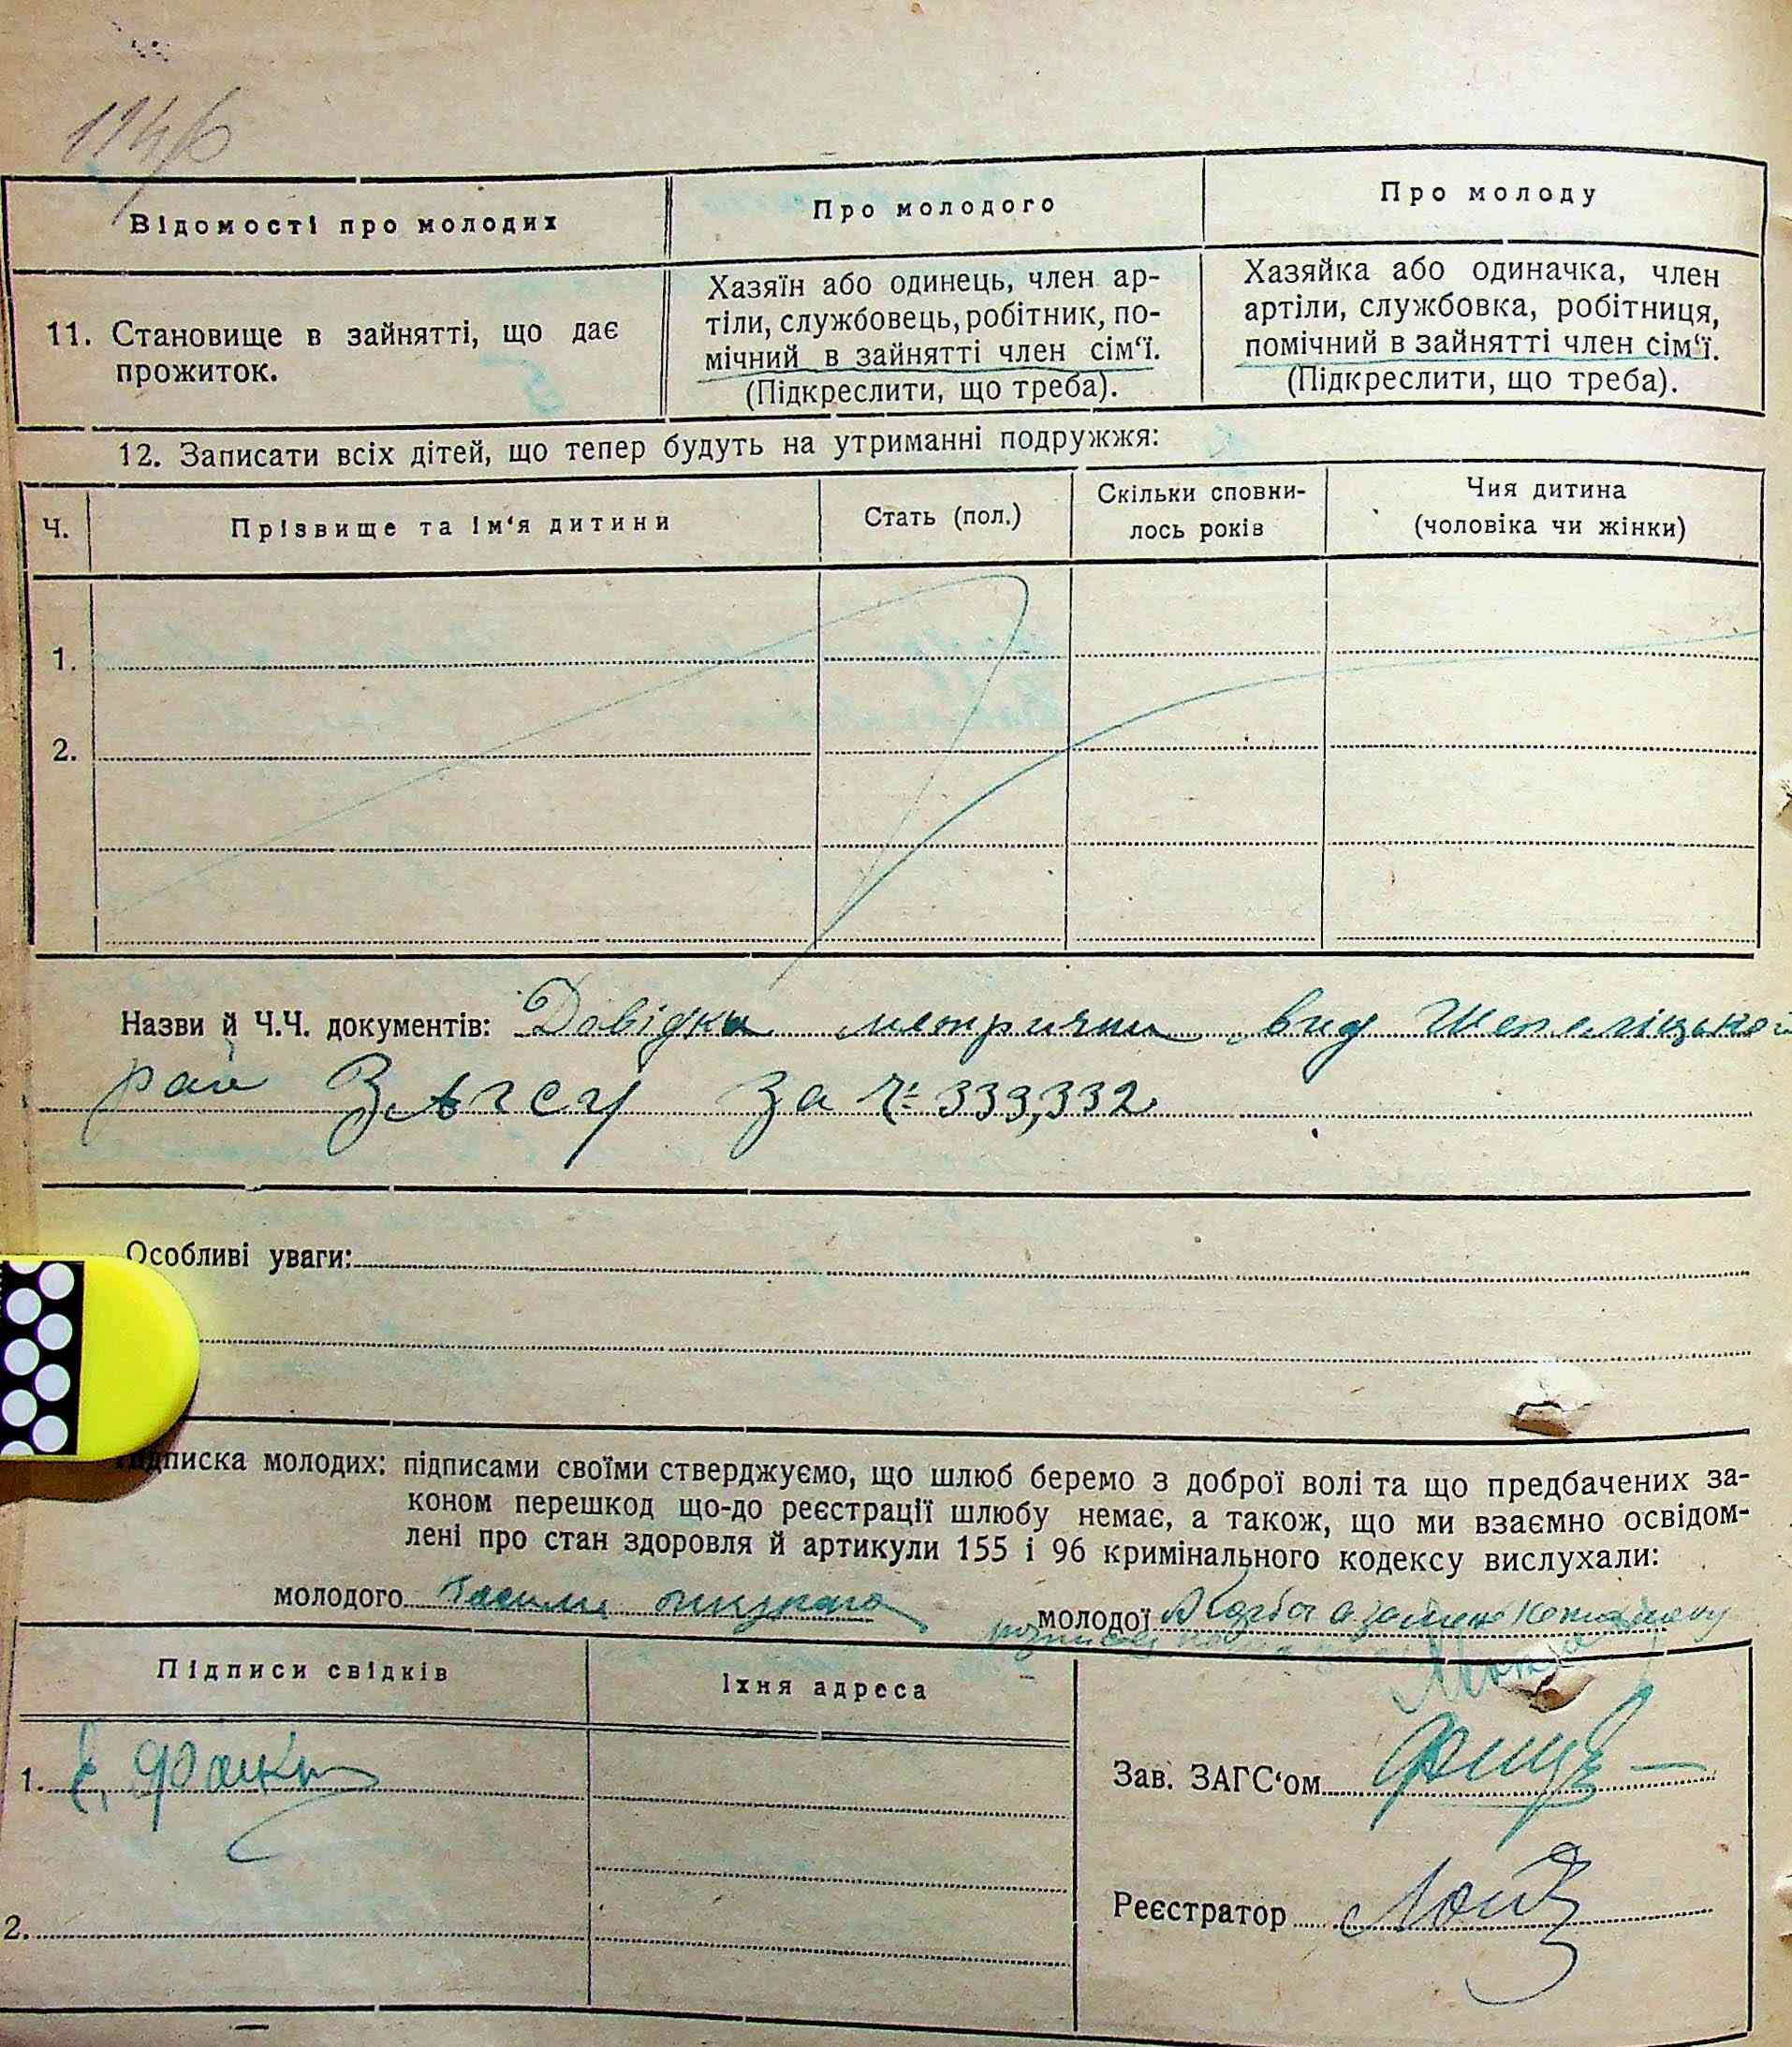 Відомості про молодих
Про молодого
Про молоду
11. Становище в зайнятті, що дає
прожиток.
Хазяїн або одинець, член ар-
тіли, службовець, робітник, по-
мічний в зайнятті член сім'ї.
(Підкреслити, що треба).
Хазяйка або одиначка, член
артіли, службовка, робітниця,
помічний в зайнятті член сім'ї.
(Підкреслити, що треба).
12. Записати всіх дітей, що тепер будуть на утриманні подружжя:
Ч.
Прізвище та ім'я дитини
Стать (пол.)
Скільки сповни-
лось років
Чия дитина
(чоловіка чи жінки)
1.
2.
Назви й Ч.Ч. документів: Довідки метричні вид
рай ЗАГСу за № 339,332
Особливі уваги:
підписами своїми стверджуємо, що шлюб беремо з доброї волі та що предбачених за-
писка молодих:
коном перешкод що-до реєстрації шлюбу немає, а також, що ми взаємно освідом-
лені про стан здоровля й артикули 155 і 96 кримінального кодексу вислухали:
молодого
молодої
Підписи свідків
Їхня адреса
1.
2.
Зав. ЗАГС'ом
Реєстратор